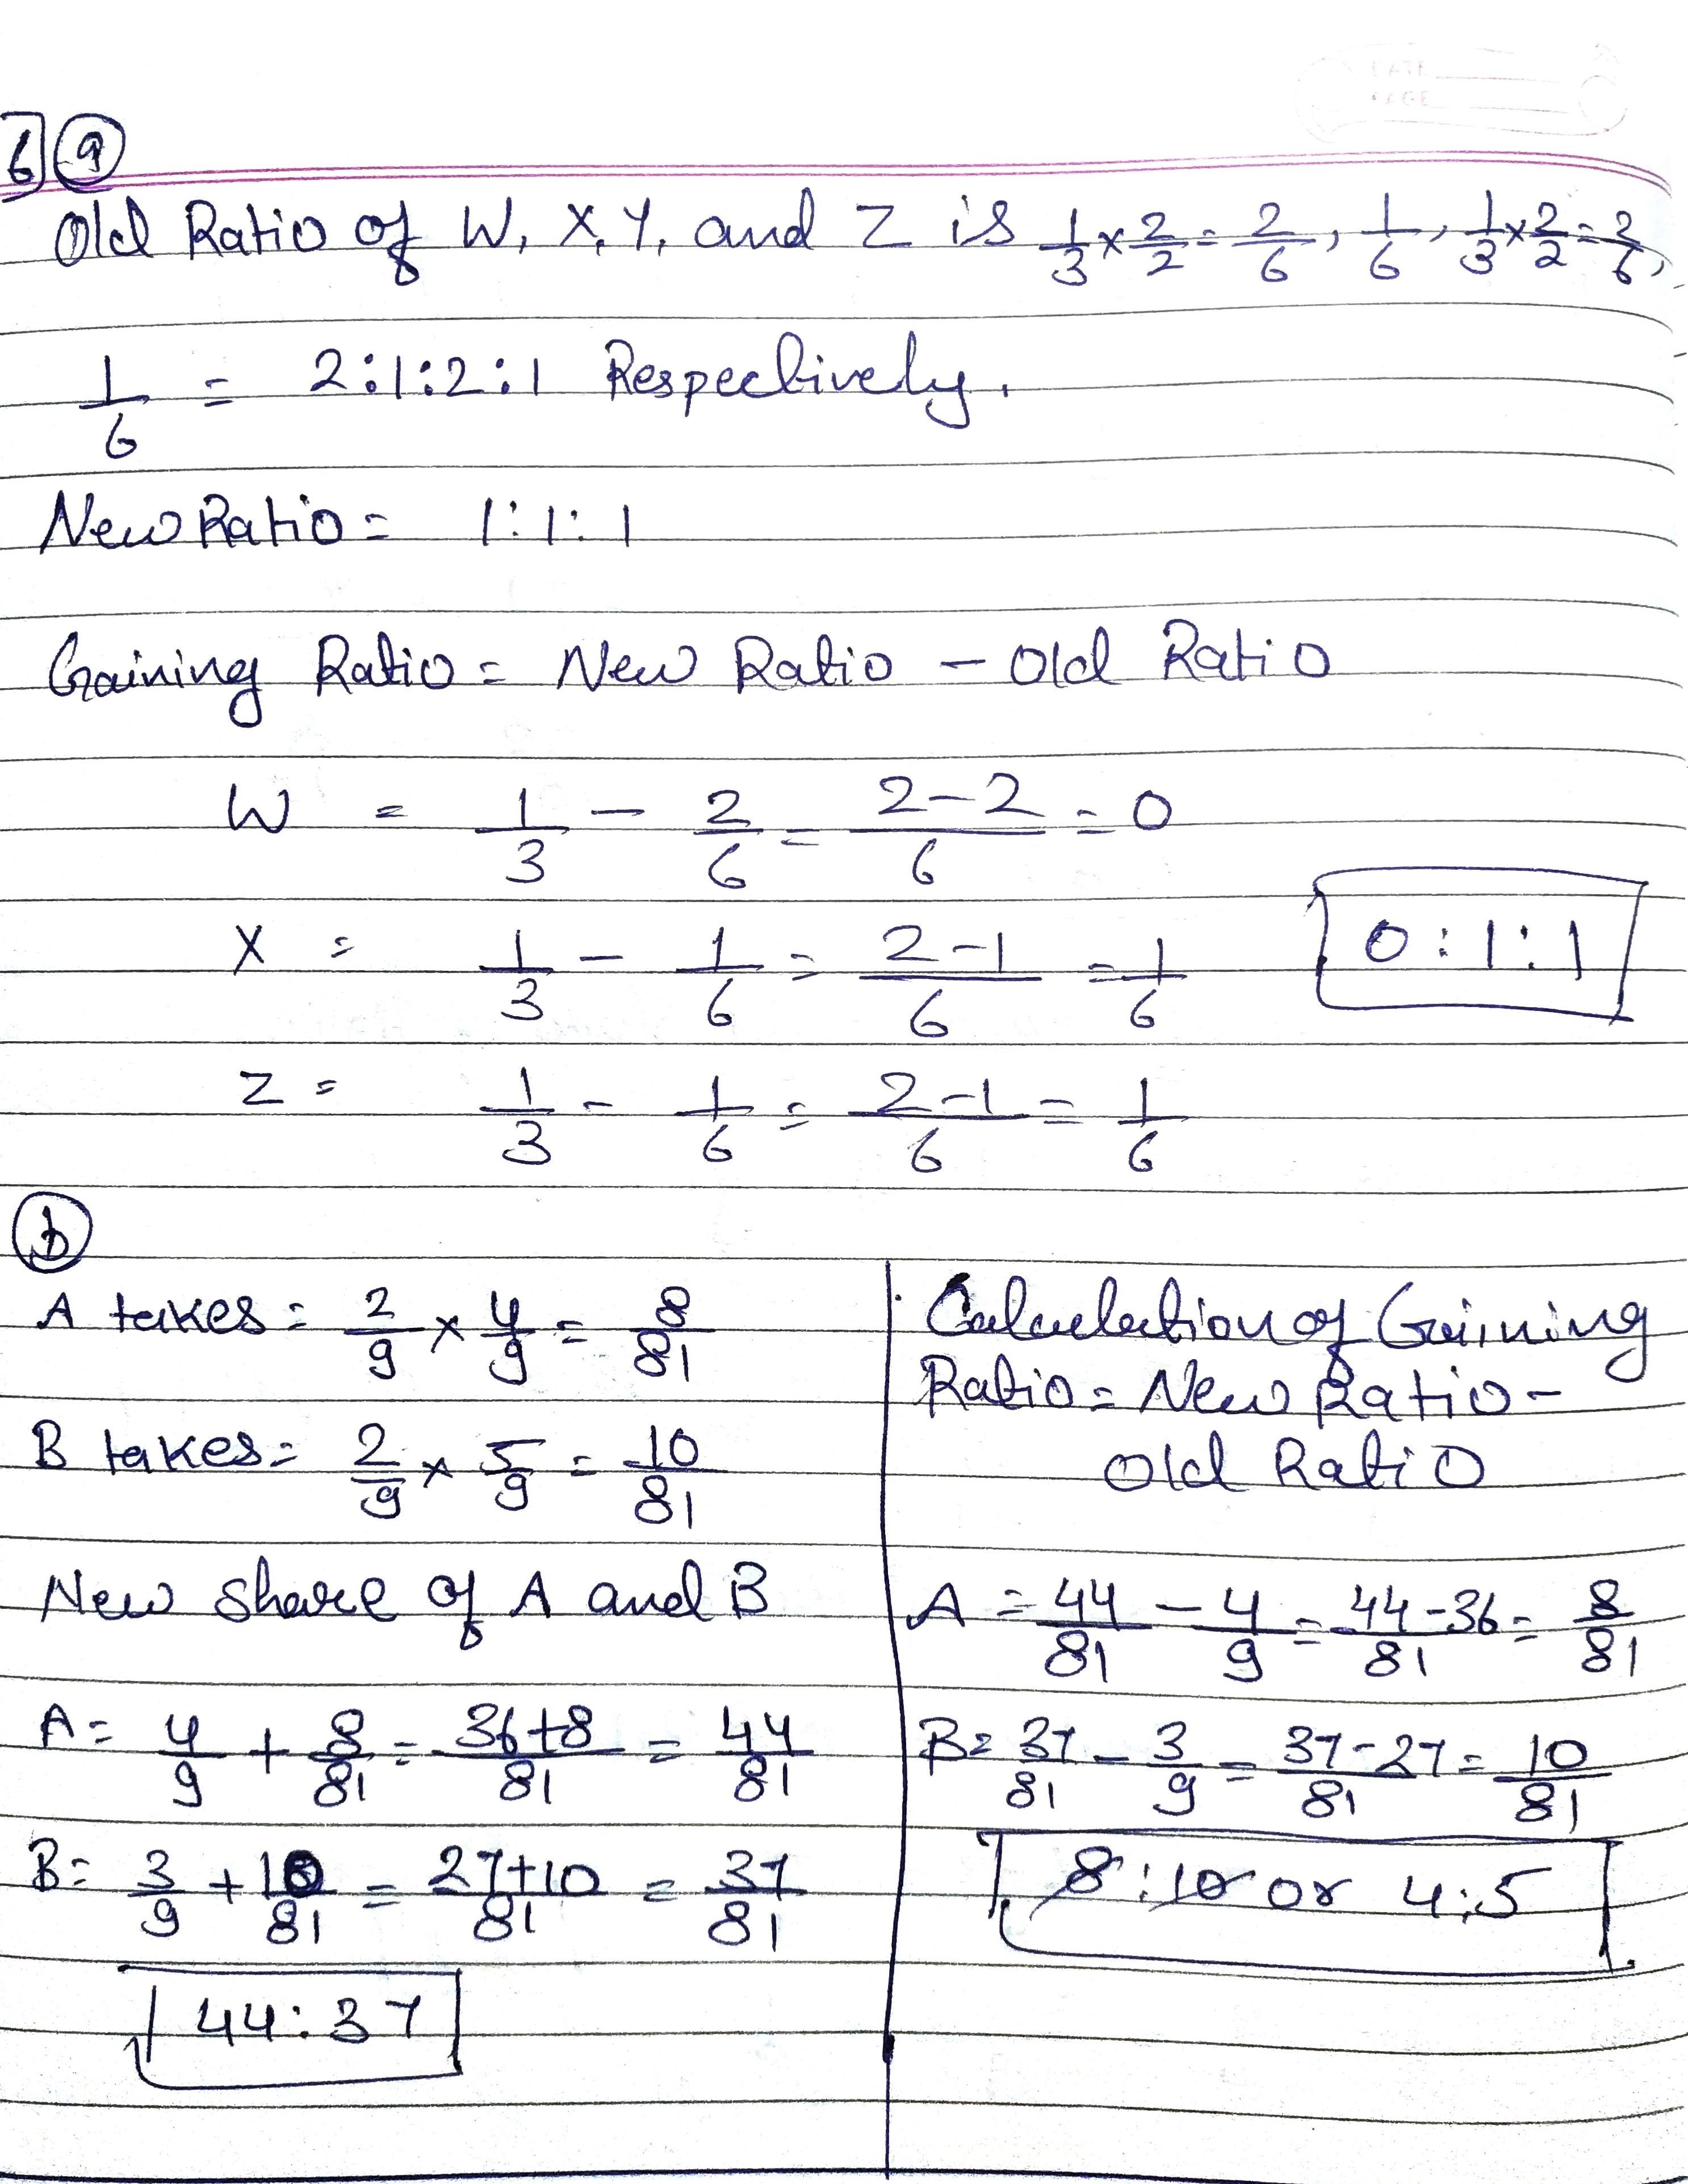 6 a
Old Ratio of W, X, Y, and Z is 1/3 × 2/2 = 2/6, 1/6, 1/3 × 2/2 = 2/6,
1/6 = 2:1:2:1 Respectively.
New Ratio = 1:1:1
Gaining Ratio = New Ratio – Old Ratio
W = 1/3 – 2/6 = 2–2/6 = 0
X = 1/3 – 1/6 = 2–1/6 = 1/6
0:1:1
Z = 1/3 – 1/6 = 2–1/6 = 1/6
b
A takes = 2/9 × 4/9 = 8/81
B takes = 2/9 × 5/9 = 10/81
New share of A and B
A = 4/9 + 8/81 = 36+8/81 = 44/81
B = 3/9 + 10/81 = 27+10/81 = 37/81
44:37
Calculation of Gaining
Ratio = New Ratio –
Old Ratio
A = 44/81 – 4/9 = 44–36/81 = 8/81
B = 37/81 – 3/9 = 37–27/81 = 10/81
8:10 or 4:5